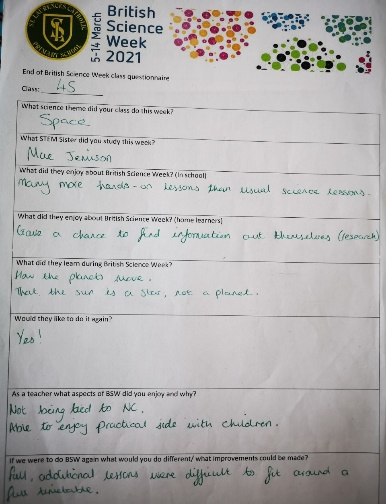 ST. LAURENCE'S CATHOLIC
PRIMARY SCHOOL
5-14 March
British
Science
Week
2021
End of British Science Week class questionnaire
Class: 4S
What science theme did your class do this week?
Space
What STEM Sister did you study this week?
Mae Jemison
What did they enjoy about British Science Week? (In school)
Many more hands-on lessons than usual science lessons.
What did they enjoy about British Science Week? (home learners)
Gave a chance to find information out themselves (research)
What did they learn during British Science Week?
How the planets move.
That the sun is a star, not a planet.
Would they like to do it again?
Yes!
As a teacher what aspects of BSW did you enjoy and why?
Not being tied to NC.
Able to enjoy practical side with children.
If we were to do BSW again what would you do different/ what improvements could be made?
Full, additional lessons were difficult to fit around a
full timetable.